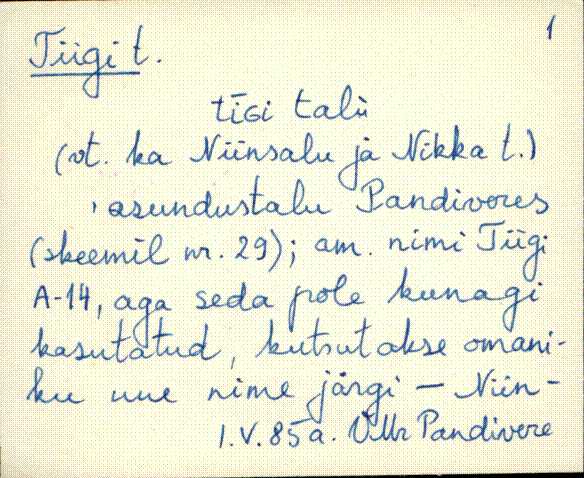 1
Tiigi t.
tīGi talù
(vt. ka Niinsalu ja Nikka t.)
asundustalu Pandiveres
(skeemil nr. 29); am. nimi Tiigi
A-14, aga seda pole kunagi
kasutatud, kutsutakse omani-
ku uue nime järgi – Niin-
1.V.85a. VMr Pandivere